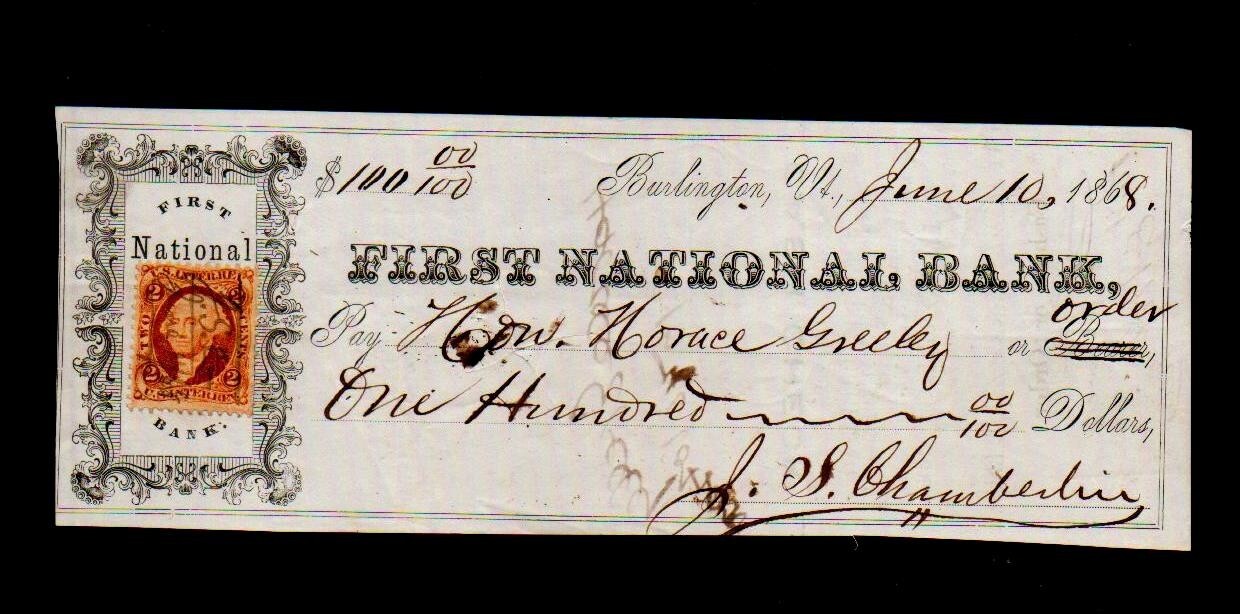 FIRST
National
U.S. INTER. REV.
2 2
TWO CENTS
2 2
U.S. INTER. REV.
BANK.
$ 100 00/100
Burlington, Vt., June 10, 1868.
FIRST NATIONAL BANK,
order
Pay Hon. Horace Greeley or Bearer,
One Hundred 00/100 Dollars,
J. S. Chamberlin